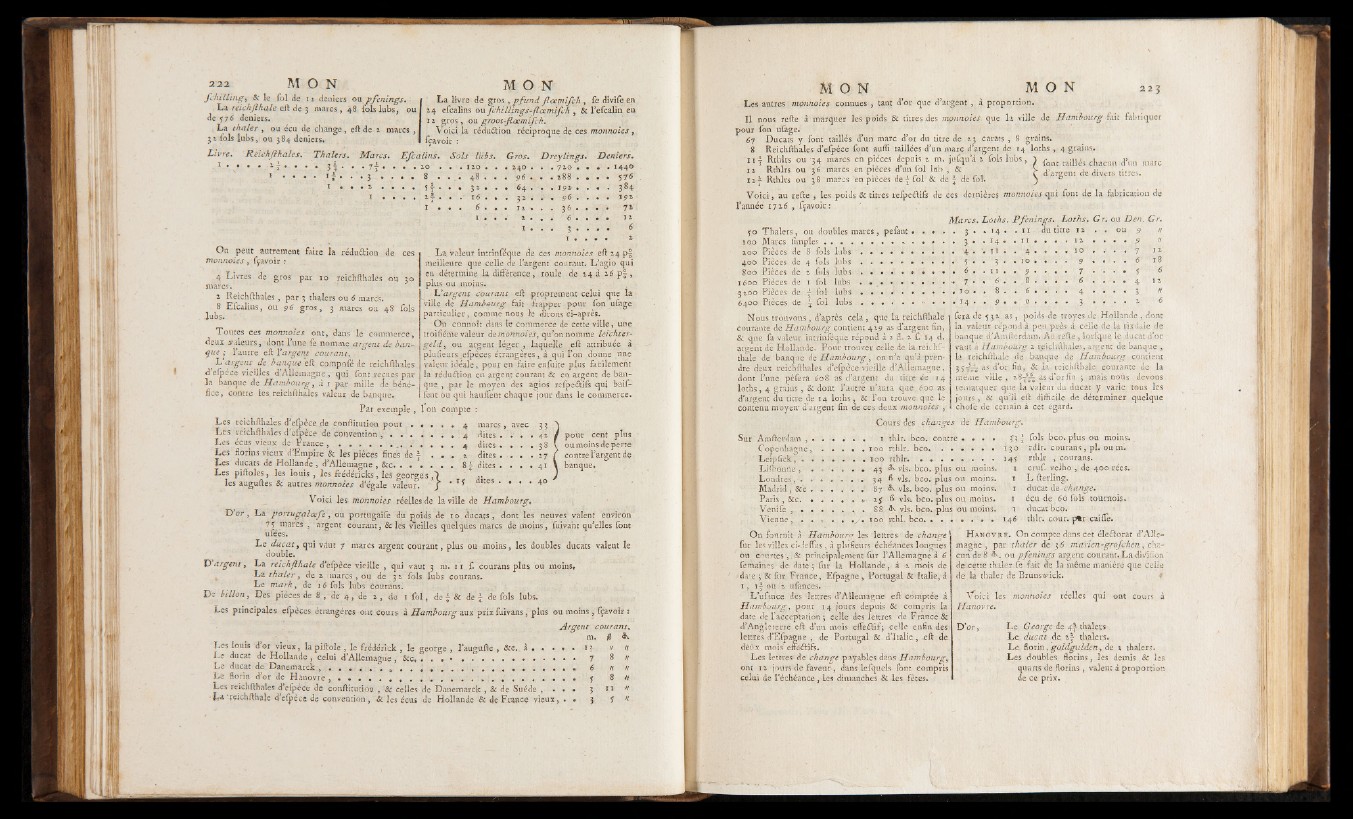 222 MON MON
schilling, & le sol de 12 deniers ou pfenings.
La reichsthale est de 3 marcs, 48 sols lubs, ou
de 576 deniers.
La thaler, ou écu de change, est de 2 marcs,
32 sols lubs, ou 384 deniers.
La livre de gros, pfund flœmisch, se divise en
24 escalins ou schillings-flœmisch, & l'escalin en
12 gros, ou groot-flœmisch.
Voici la réduction réciproque de ces monnoies,
sçavoir :
Livre. Reichsthales. Thalers. Marcs. Escalins. Sols lubs. Gros. Dreylings. Deniers.
1 . . . . 2½ . . . . 3¾ . . . . 7½ . . . . 20 . . . 120 . . . 240 . . . . 720 . . . . 1440
1 . . . . 1½ . . . 3 . . . . 8 . . . 48 . . . 96 . . . 288 . . . . 576
1 . . . 2 . . . . 5⅓ . . . 32 . . . 64 . . . 192 . . . . 384
1 . . . . 2⅔ . . . 16 . . . 32 . . . . 96 . . . . 192
1 . . . 6 . . . 12 . . . 36 . . . . 72
1 . . . 2 . . . . 6 . . . . 12
1 . . . 3 . . . . 6
1 . . . . 2
On peut autrement faire la réduction de ces
monnoies, sçavoir :
4 Livres de gros par 10 reichsthales ou 30
marcs.
2 Reichsthales, par 3 thalers ou 6 marcs.
8 Escalins, ou 96 gros, 3 marcs ou 48 sols
lubs.
Toutes ces monnoies ont, dans le commerce,
deux valeurs, dont l'une se nomme argent de banque ;
l'autre est l'argent courant.
L'argent de banque est composé de reichsthales
d'espèce vieilles d'Allemagne, qui sont reçues par
la banque de Hambourg, à 1 par mille de bénéfice,
contre les reichsthales valeur de banque.
La valeur intrinséque de ces monnoies est 24 p⁰⁄₀
meilleure que celle de l'argent courant. L'agio qui
en détermine la différence, roule de 24 à 26 p⁰⁄₀,
plus ou moins.
L'argent courant est proprement celui que la
ville de Hambourg fait frapper pour son usage
particulier, comme nous le disons ci-après.
On connoît dans le commerce de cette ville, une
troisiéme valeur de monnoies, qu'on nomme leichtergeld,
ou argent léger, laquelle est attribuée à
plusieurs espèces étrangères, à qui l'on donne une
valeur idéale, pour en faire ensuite plus facilement
la réduction en argent courant & en argent de banque,
par le moyen des agios respectifs qui baissent
ou qui haussent chaque jour dans le commerce.
Par exemple, l'on compte :
Les reichsthales d'espèce de constitution pour . . . . . 4 marcs, avec 33
Les reichsthales d'espèce de convention, . . . . . . . 4 dites . . . . 42
Les écus vieux de France, . . . . . . . . . . . 4 dites . . . . 38
Les florins vieux d'Empire & les pièces fines de ⅔ . . . 2 dites . . . . 27
Les ducats de Hollande, d'Allemagne, &c. . . . . . . 8½ dites . . . . 41
Les pistoles, les louis, les frédéricks, les georges,
les augustes & autres monnoies d'égale valeur. } . 15 dites . . . . 40
pour cent plus
ou moins de perte
contre l'argent de
banque.
Voici les monnoies réelles de la ville de Hambourg.
D'or, La portugalœse, ou portugaise du poids de 10 ducats, dont les neuves valent environ
75 marcs, argent courant, & les vieilles quelques marcs de moins, suivant qu'elles sont
usées.
Le ducat, qui vaut 7 marcs argent courant, plus ou moins, les doubles ducats valent le
double.
D'argent, La reichsthale d'espèce vieille, qui vaut 3 m. 11 s. courans plus ou moins.
La thaler, de 2 marcs, ou de 32 sols lubs courans.
Le mark, de 16 sols lubs courans.
De billon, Des pièces de 8, de 4, de 2, de 1 sol, de ½ & de ¼ de sols lubs.
Les principales espèces étrangères ont cours à Hambourg aux prix suivans, plus ou moins, sçavoir :
Argent courant.
m. ß ₰.
Les louis d'or vieux, la pistole, le frédérick, le george, l'auguste, &c. à . . . . . 12 " "
Le ducat de Hollande, celui d'Allemagne, &c, . . . . . . . . . . . . . . 7 8 "
Le ducat de Danemarck, . . . . . . . . . . . . . . . . . . . . 6 " "
Le florin d'or de Hanovre, . . . . . . . . . . . . . . . . . . . 5 8 "
Les reichsthales d'espèce de constitution, & celles de Danemarck, & de Suéde, . . . . 3 12 "
La reichsthale d'espèce de convention, & les écus de Hollande & de France vieux, . . 3 5 "
MON MON 223
Les autres monnoies connues, tant d'or que d'argent, à proportion.
Il nous reste à marquer les poids & titres des monnoies que la ville de Hambourg fait fabriquer
pour son usage.
67 Ducats y sont taillés d'un marc d'or du titre de 23 carats, 8 grains.
8 Reichsthales d'espèce sont aussi taillées d'un marc d'argent de 14 loths, 4 grains.
11⅓ Rthlrs ou 34 marcs en pièces depuis 2 m. jusqu'à 2 sols lubs,
12 Rthlrs ou 36 marcs en pièces d'un sol lub, &
12⅔ Rthlrs ou 38 marcs en pièces de ½ sol & de ¼ de sol.
sont taillés chacun d'un marc
d'argent de divers titres.
Voici, au reste, les poids & titres respectifs de ces dernières monnoies qui sont de la fabrication de
l'année 1726, sçavoir :
Marcs. Loths. Pfenings. Loths. Gr. ou Den. Gr.
50 Thalers, ou doubles marcs, pesant . . . . . 3 . . 14 . . 11 du titre 12 . . ou 9 "
100 Marcs simples . . . . . . . . . . 3 . . 14 . . 11 . . . . 12 . . . . 9 "
200 Pièces de 8 sols lubs . . . . . . . . . 4 . . 11 . . 2 . . . . 10 . . . . 7 12
400 Pièces de 4 sols lubs . . . . . . . . . 5 . . 3 . . 10 . . . . 9 . . . . 6 18
800 Pièces de 2 sols lubs . . . . . . . . . 6 . . 11 . . 9 . . . . 7 . . . . 5 6
1600 Pièces de 1 sol lubs . . . . . . . . . 7 . . 6 . . 8 . . . . 6 . . . . 4 12
3200 Pièces de ½ sol lubs . . . . . . . . . 10 . . 8 . . 6 . . . . 4 . . . . 3 "
6400 Pièces de ¼ sol lubs . . . . . . . . . 14 . . 9 . . 0 . . . . 3 . . . . 2 6
Nous trouvons, d'après cela, que la reichsthale
courante de Hambourg contient 429 as d'argent fin,
& que sa valeur intrinséque répond à 2 fl. 2 s. 14 d.
argent de Hollande. Pour trouver celle de la reichsthale
de banque de Hambourg, on n'a qu'à prendre
deux reichsthales d'espèce vieille d'Allemagne,
dont l'une pésera 608 as d'argent du titre de 14
loths, 4 grains, & dont l'autre n'aura que 600 as
d'argent du titre de 14 loths, & l'on trouve que le
contenu moyen d'argent fin de ces deux monnoies,
sera de 532 as, poids de troyes de Hollande, dont
la valeur répond à peu près à celle de la rixdale de
banque d'Amsterdam. Au reste, lorsque le ducat d'or
vaut à Hambourg 2 reichsthales, argent de banque,
la reichsthale de banque de Hambourg contient
as d'or fin, & la reichsthale courante de la
même ville, as d'or fin ; mais nous devons
remarquer que la valeur du ducat y varie tous les
jours, & qu'il est difficile de déterminer quelque
chose de certain à cet égard.
Cours des changes de Hambourg.
Sur Amsterdam, . . . . . . 1 thlr. bco. contre . . . . 33½ sols bco. plus ou moins.
Copenhague, . . . . . . 100 rthlr. bco. . . . . . . . 130 rdlr. courans, pl. ou m.
Leipsick, . . . . . . . 100 rthlr. . . . . . . . . 145 rthlr., courans.
Lisbonne, . . . . . . 43 ₰ vls. bco. plus ou moins. 1 cruf. velho, de 400 rées.
Londres, . . . . . . . 34 ß vls. bco. plus ou moins. 1 L sterling.
Madrid, &c . . . . . . 87 ₰ vls. bco. plus ou moins. 1 ducat de change.
Paris, &c. . . . . . . 25 ß vls. bco. plus ou moins. 1 écu de 60 sols tournois.
Venise, . . . . . . . 88 ₰ vls. bco. plus ou moins. 1 ducat bco.
Vienne, . . . . . . . 100 rthl. bco. . . . . . . . . 146 thlr. cour. par caisse.
On fournit à Hambourg les lettres de change
sur les villes ci-dessus, à plusieurs échéances longues
ou courtes, & principalement sur l'Allemagne à 6
semaines de date ; sur la Hollande, à 2 mois de
date ; & sur France, Espagne, Portugal & Italie, à
1, 1½ ou 2 usances.
L'usance des lettres d'Allemagne est comptée à
Hambourg, pour 14 jours depuis & compris la
date de l'acceptation ; celle des lettres de France &
d'Angleterre est d'un mois effectif ; celle enfin des
lettres d'Espagne, de Portugal & d'Italie, est de
deux mois effectifs.
Les lettres de change payables dans Hambourg,
ont 12 jours de faveur, dans lesquels sont compris
celui de l'échéance, les dimanches & les fêtes.
HANOVRE. On compte dans cet électorat d'Allemagne,
par thaler de 36 marien-groschen, chacun
de 8 ₰, ou pfenings argent courant. La division
de cette thaler se fait de la même manière que celle
de la thaler de Brunswick.
Voici les monnoies réelles qui ont cours à
Hanovre.
D'or, Le George de 4⅔ thalers
Le ducat de 2⅔ thalers.
Le florin, goldgulden, de 2 thalers.
Les doubles florins, les demis & les
quarts de florins, valent à proportion
de ce prix.